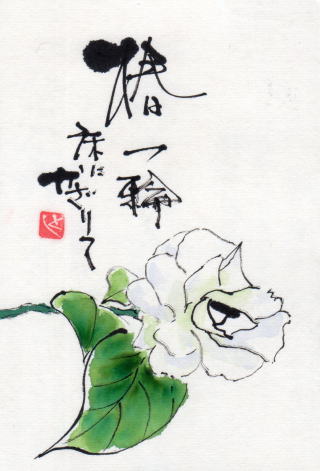 椿は
一輪
床に
かざりて